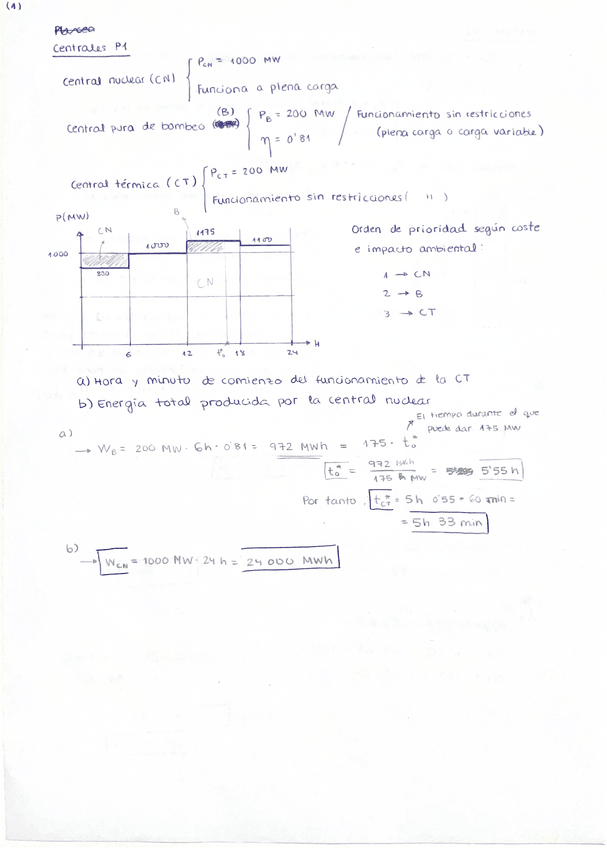 (1)
Centrales P1
Central nuclear (CN) { P_CN = 1000 MW
Funciona a plena carga
Central pura de bombeo (B) { P_B = 200 MW / Funcionamiento sin restricciones
η = 0'81 (plena carga o carga variable)
Central térmica (CT) { P_CT = 200 MW
Funcionamiento sin restricciones ( " )
P(MW)
B
CN
1175
1000
1100
1.000
CN
6
12
t'₀
18
24
H
Orden de prioridad según coste
e impacto ambiental:
1 → CN
2 → B
3 → CT
a) Hora y minuto de comienzo del funcionamiento de la CT
b) Energía total producida por la central nuclear
El tiempo durante el que
puede dar 175 MW
a)
→ W_B = 200 MW · 6h · 0'81 = 972 MWh = 175 · t₀*
t₀* = 972 MWh / 175 MW = 5'55 h
Por tanto, t*_CT = 5h 0'55 · 60 min =
= 5h 33 min
b)
→ W_CN = 1000 MW · 24 h = 24 000 MWh